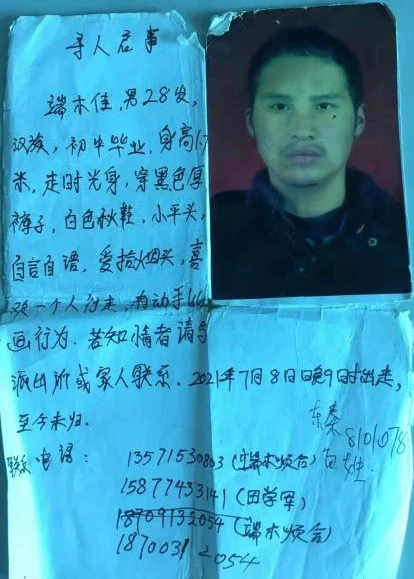 寻人启事
端木佳，男28岁，
汉族，初中毕业，身高1.7
米，走时光身，穿黑色厚
裤子，白色秋鞋，小平头，
自言自语，爱捡烟头，喜
欢一个人行走，有动手比
画行为．若知情者请与
派出所或家人联系．2021年7月8日晚9时出走，
至今未归．
联系电话：
13571530803（端木顺合）
15877433141（田学军）
18709132054（端木顺合）
18700312054
8101078